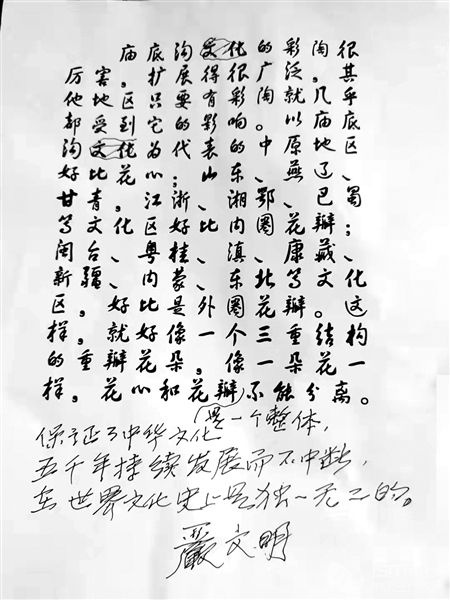 庙底沟文化的彩陶很
厉害。扩展得很广泛。其
他地区只要有彩陶。几乎
都受到它的影响。以庙底
沟文化为代表的中原地区
好比花心；山东、燕辽、
甘青。江浙、湘鄂、巴蜀
等文化区好比内圈花瓣；
闽台、粤桂、滇、康藏、
新疆、内蒙、东北等文化
区。好比是外圈花瓣。这
样。就好像一个三重结构
的重瓣花朵，像一朵花一
样。花心和花瓣不能分离。
是一个整体，
保证了中华文化
五千年持续发展而不中断，
在世界文化史上是独一无二的。
嚴文明